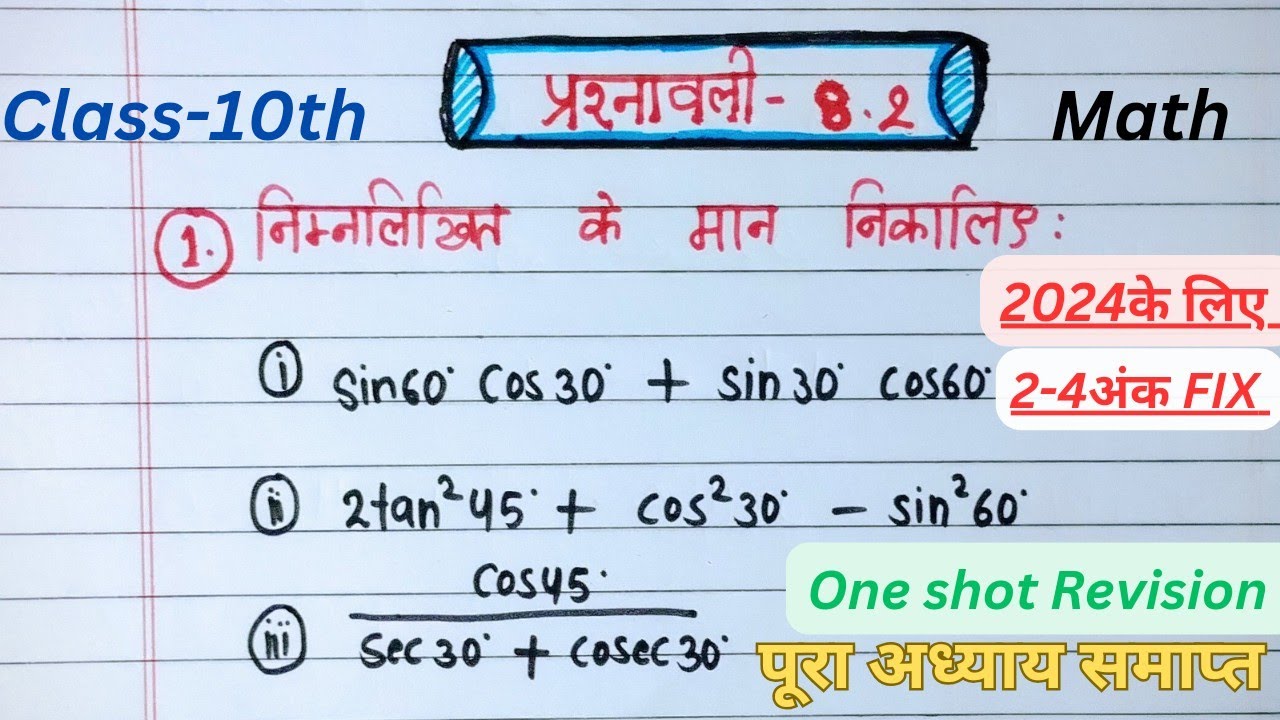 Class-10th
प्रश्नावली - 8.2
Math
1. निम्नलिखित के मान निकालिए :
2024के लिए
i sin60° cos30° + sin30° cos60°
2-4अंक FIX
ii 2tan²45° + cos²30° - sin²60°
One shot Revision
iii cos45°
sec30° + cosec30°
पूरा अध्याय समाप्त